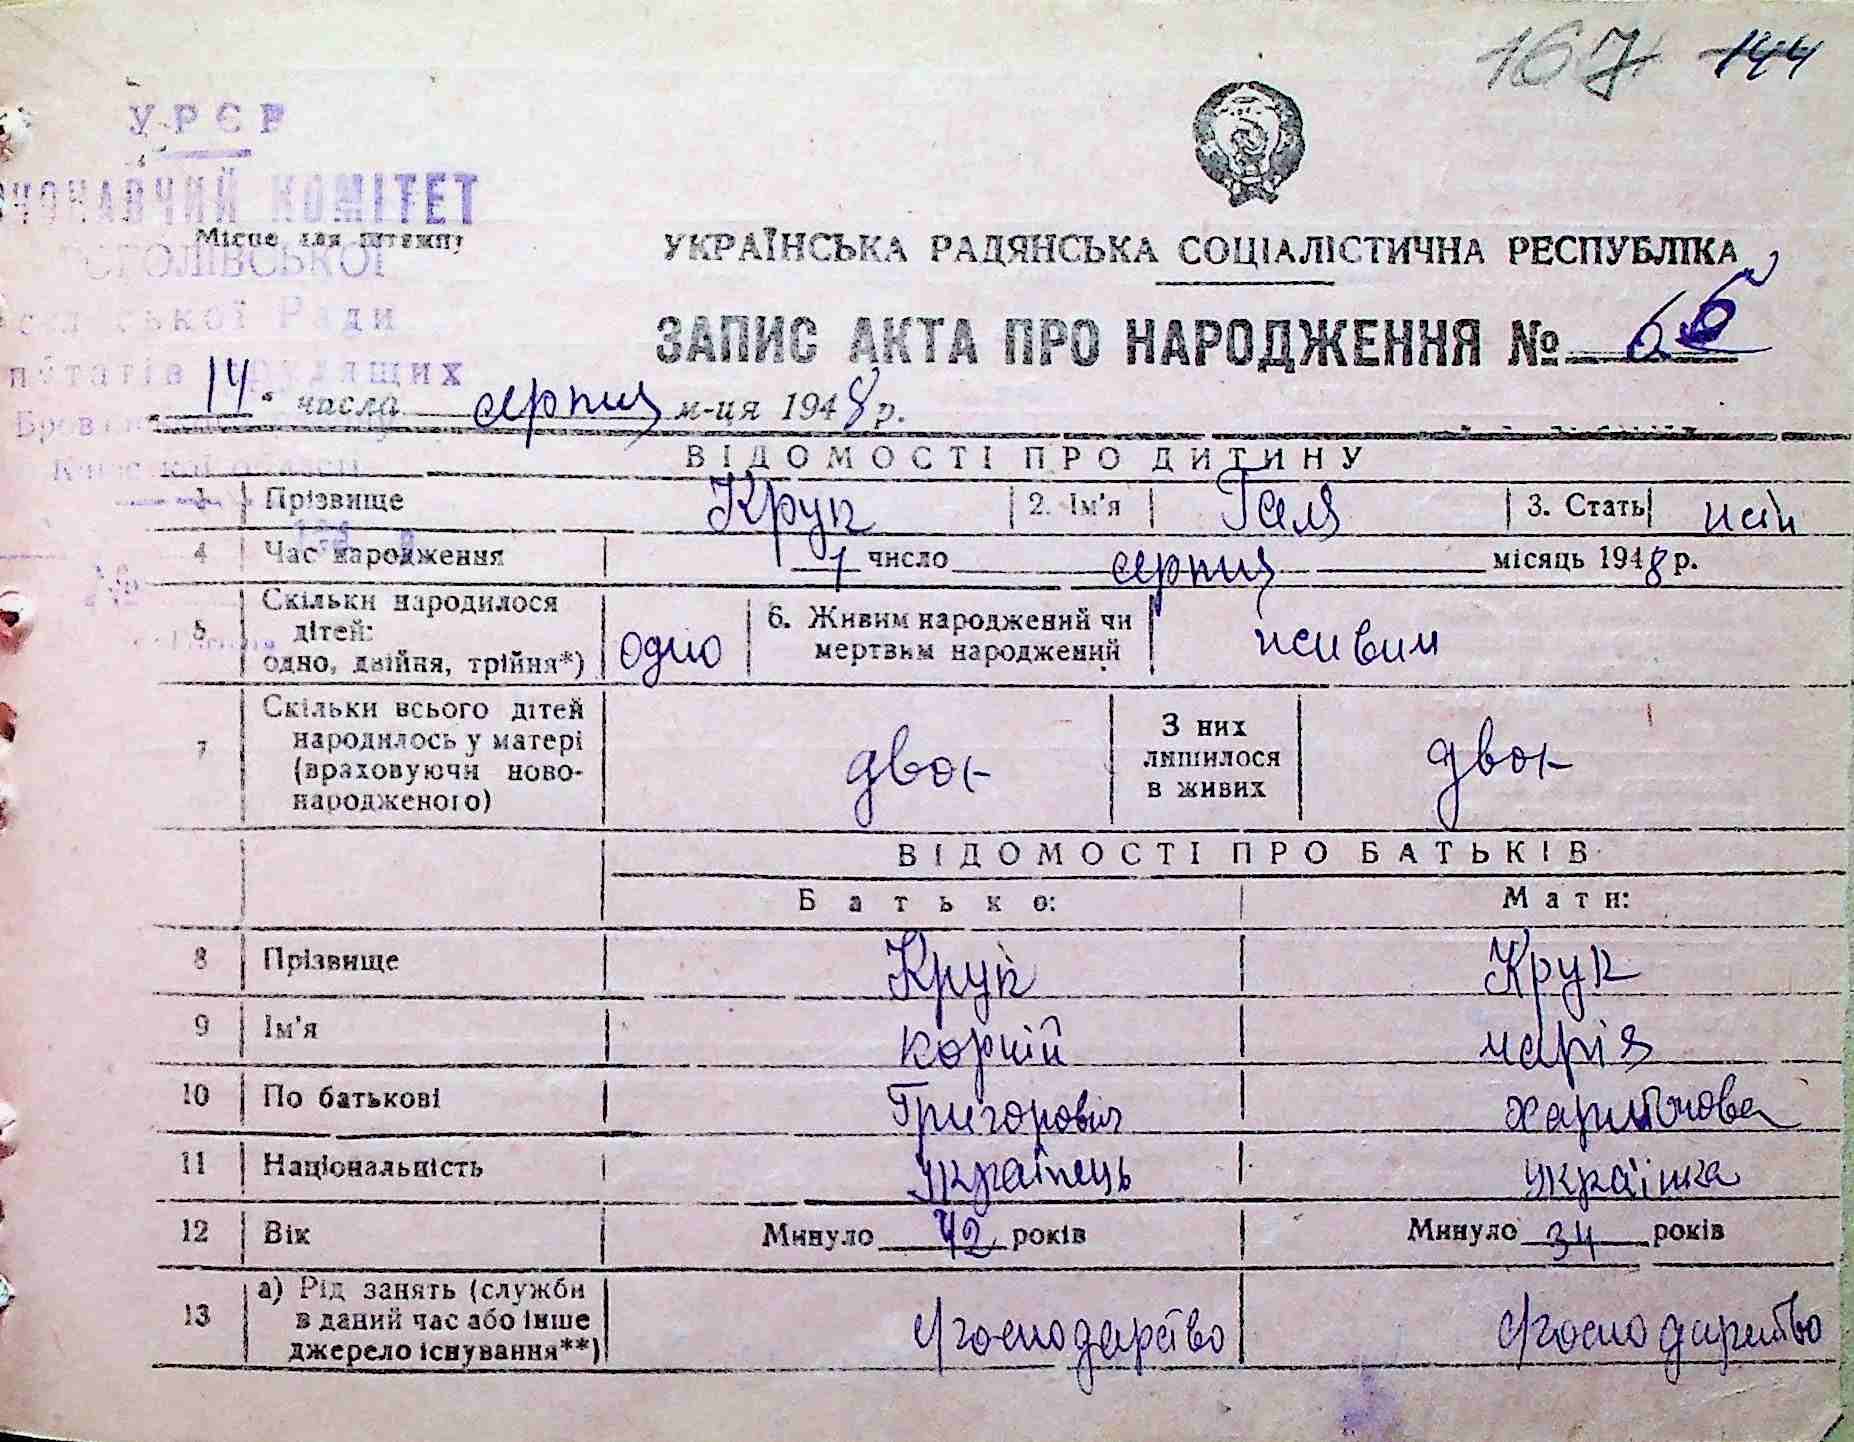 167 144
УРСР
ВИКОНАВЧИЙ КОМІТЕТ
Місце для штампу
УКРАЇНСЬКА РАДЯНСЬКА СОЦІАЛІСТИЧНА РЕСПУБЛІКА
ської Ради
ЗАПИС АКТА ПРО НАРОДЖЕННЯ № 66
трудящих
14 числа серпня м-ця 1948 р.
ВІДОМОСТІ ПРО ДИТИНУ
1 Прізвище Крук 2. Ім'я Галя 3. Стать жін
4 Час народження 7 число серпня місяць 1948 р.
№
5 Скільки народилося дітей: одно, двійня, трійня*) одно 6. Живим народжений чи мертвим народжений живим
7 Скільки всього дітей народилось у матері (враховуючи новонародженого) двоє З них лишилося в живих двоє
ВІДОМОСТІ ПРО БАТЬКІВ
Батько: Мати:
8 Прізвище Крук Крук
9 Ім'я Корній Марія
10 По батькові Григорович Харитонова
11 Національність українець українка
12 Вік Минуло 42 років Минуло 34 років
13 а) Рід занять (служби в даний час або інше джерело існування**) с/господарство с/господарство